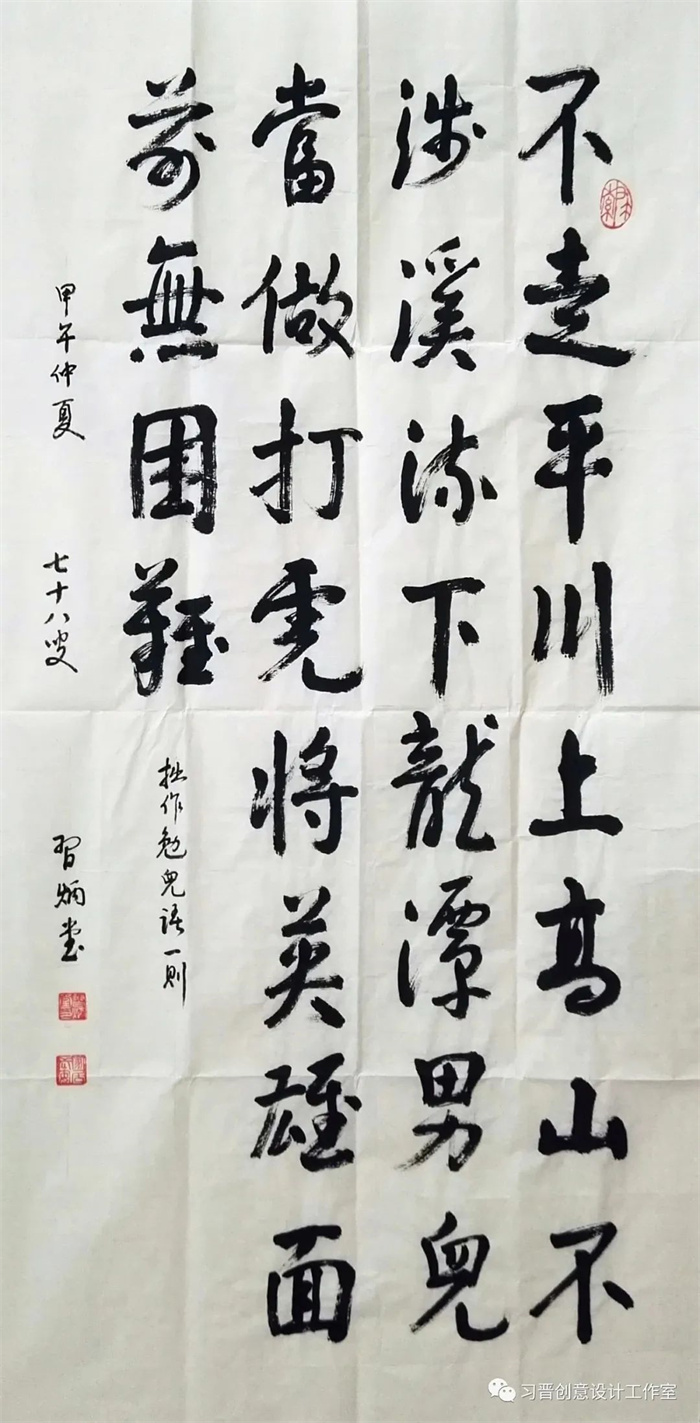 不走平川上高山不
涉溪流下龍潭男兒
當做打虎將英雄面
前無困難
拙作勉兒語一則
甲午仲夏 七十八叟 習炳堂
习晋创意设计工作室